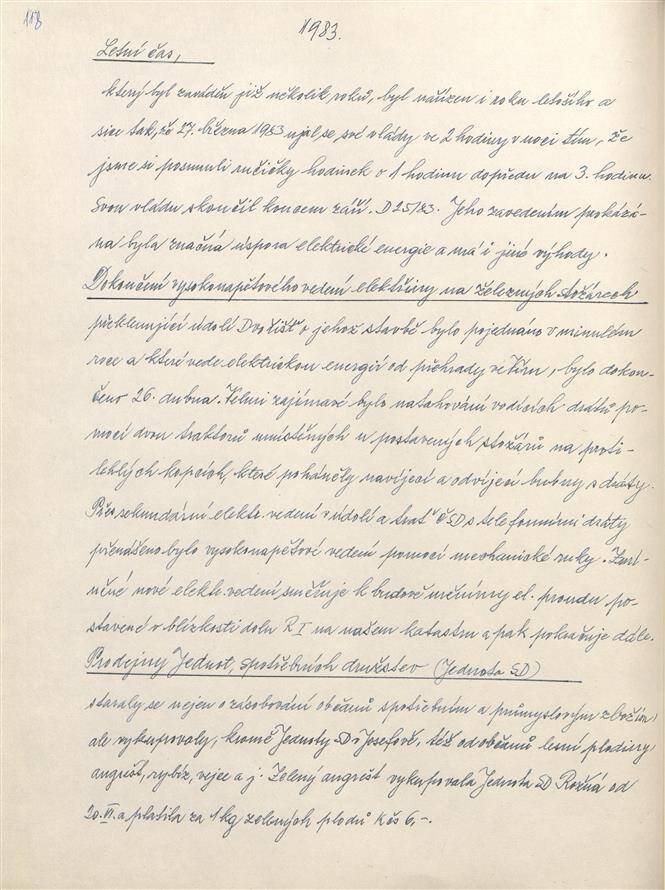 118
1983.
Letní čas,
který byl zaváděn již několik roků, byl nařízen i roku letošího a
sice tak, že 27. března 1983 ujal se své vlády ve 2 hodiny v noci tím, že
jsme si posunuli ručičky hodinek o 1 hodinu dopředu na 3. hodinu.
Svou vládu skončil koncem září. D 25/83. Jeho zavedením prokázá-
na byla značná úspora elektrické energie a má i jiné výhody.
Dokončení vysokonapěťového vedení elektřiny na železných stožárech
překlenující údolí Dvořišť o jehož stavbě bylo pojednáno v minulém
roce a které vede elektrickou energii od přehrady ve Víru, bylo dokon-
čeno 26. dubna. Velmi zajímavé bylo natahování vodících drátů po-
mocí dvou traktorů umístěných u postavených stožárů na proti-
lehlých kopcích, které poháněly navíjecí a odvíjecí bubny s dráty.
Přes sekundární elektr. vedení v údolí a trať ČSD s telefonními dráty
přenášeno bylo vysokonapěťové vedení pomocí mechanické ruky. Zmí-
něné nové elektr. vedení směřuje k budově měnírny el. proudu po-
stavené v blízkosti dolu R I na našem katastru a pak pokračuje dále.
Prodejny Jednot, spotřebních družstev (Jednota SD)
staraly se nejen o zásobování občanů spotřebním a průmyslovým zbožím,
ale vykupovaly, kromě Jednoty SD v Josefově, též od občanů lesní plodiny,
angrešt, rybíz, vejce a j. Zelený angrešt vykupovala Jednota SD Rožná od
20. VI. a platila za 1 kg zelených plodů Kčs 6,-.